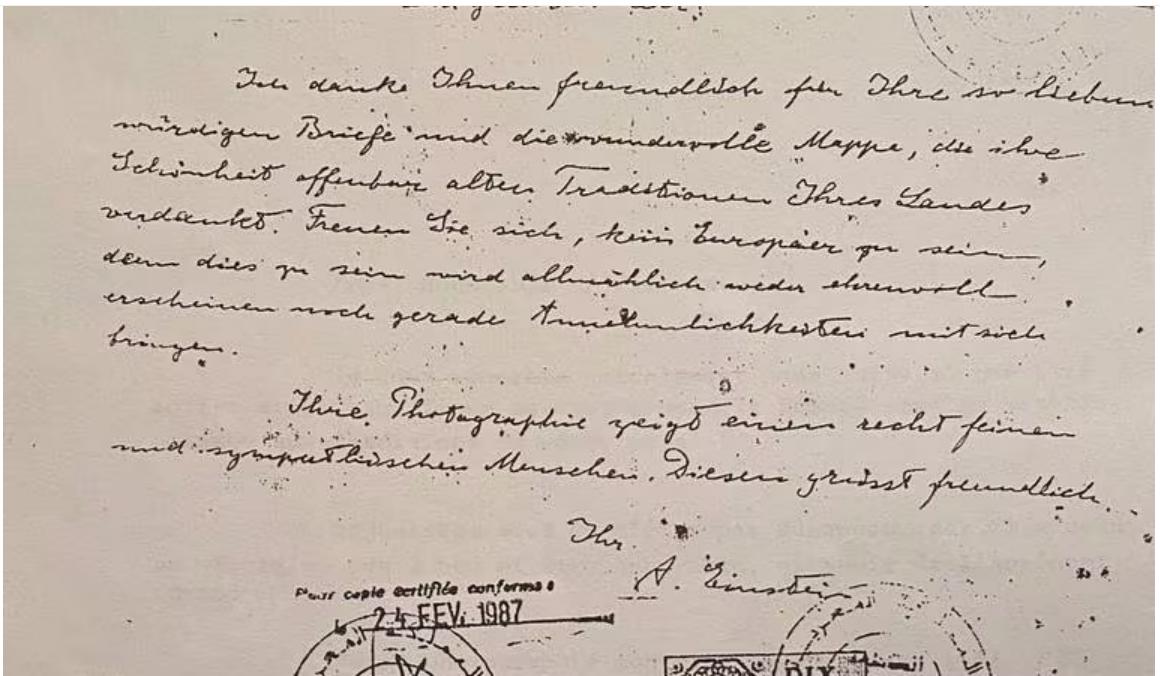 Ich danke Ihnen freundlich für Ihre so lieben
würdigen Briefe und die wundervolle Mappe, die ihre
Schönheit offenbar alten Traditionen Ihres Landes
verdankt. Freuen Sie sich, kein Europäer zu sein,
denn dies zu sein wird allmählich weder ehrenvoll
erscheinen noch gerade Annehmlichkeiten mit sich
bringen.
Ihre Photographie zeigt einen recht feinen
und sympathischen Menschen. Diesen grüsst freundlich
Ihr
A. Einstein
Pour copie certifiée conforme
24 FEV. 1987
DIX